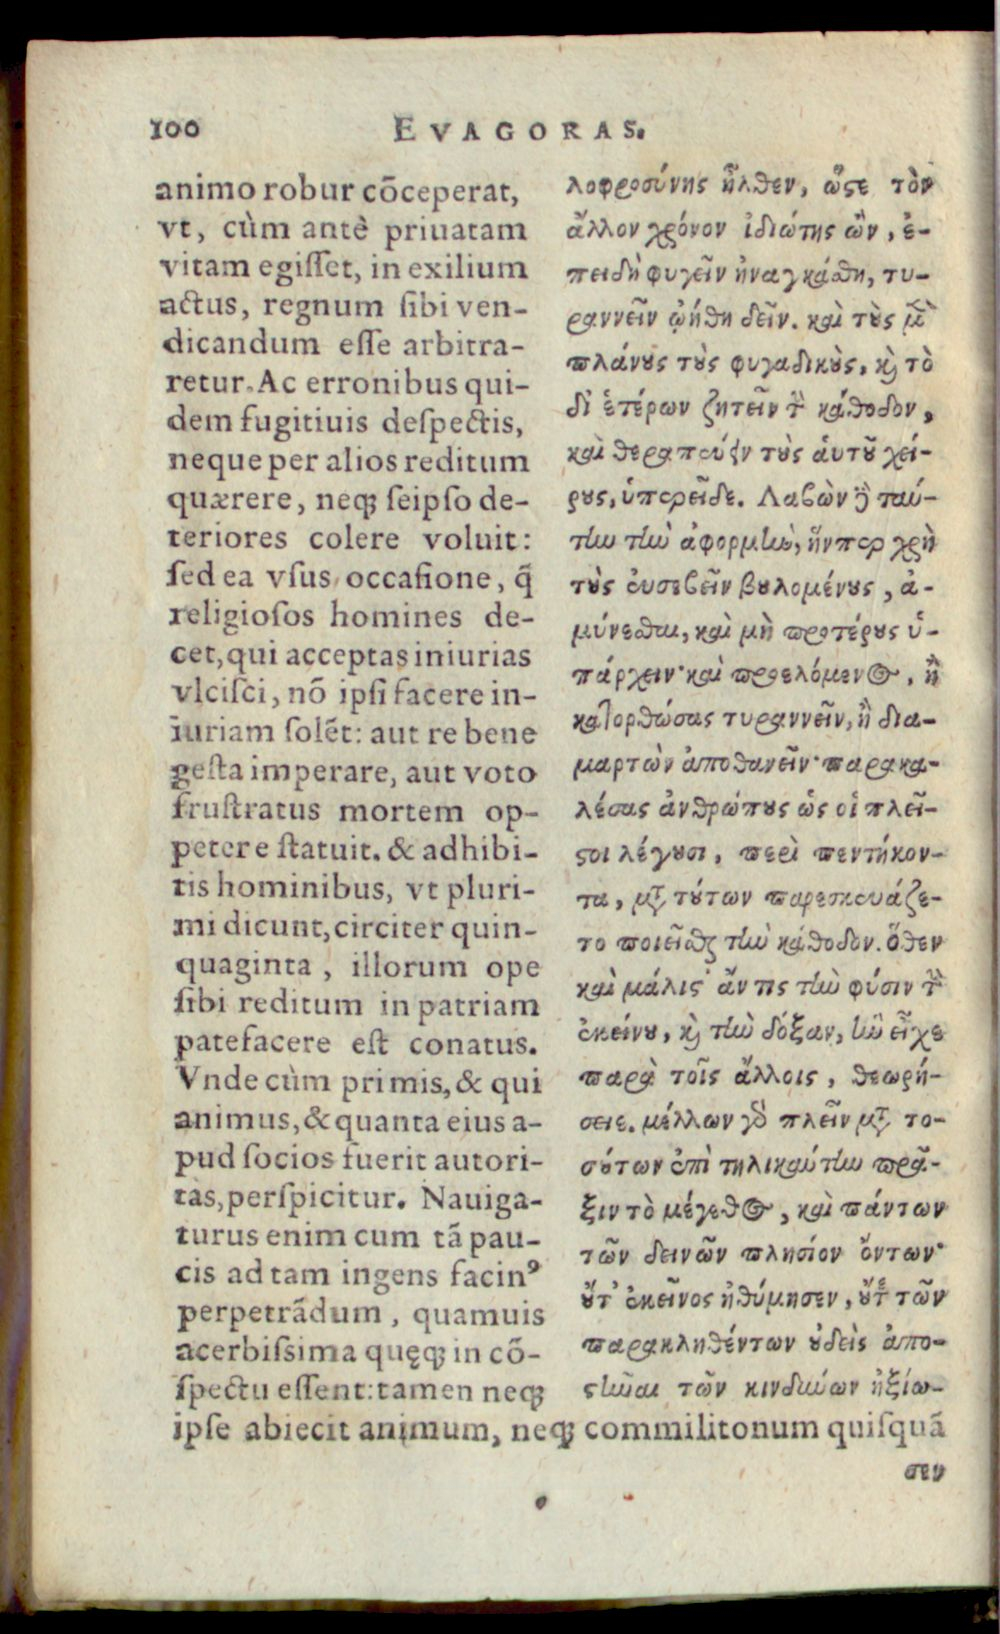 100 EVAGORAS.
animo robur cōceperat,
vt, cùm antè priuatam
vitam egiſſet, in exilium
actus, regnum ſibi ven-
dicandum eſſe arbitra-
retur. Ac erronibus qui-
dem fugitiuis deſpectis,
neque per alios reditum
quærere, neq; ſeipſo de-
teriores colere voluit:
ſed ea vſus occaſione, q̃
religioſos homines de-
cet, qui acceptas iniurias
vlciſci, nō ipſi facere in-
iuriam ſolēt: aut re bene
geſta imperare, aut voto
fruſtratus mortem op-
petere ſtatuit. & adhibi-
tis hominibus, vt pluri-
mi dicunt, circiter quin-
quaginta, illorum ope
ſibi reditum in patriam
patefacere eſt conatus.
Vnde cùm primis, & qui
animus, & quanta eius a-
pud ſocios fuerit autori-
tas, perſpicitur. Nauiga-
turus enim cum tā pau-
cis ad tam ingens facin⁹
perpetrādum, quamuis
acerbiſsima quęq; in cō-
ſpectu eſſent: tamen neq;
ipſe abiecit animum, neq; commilitonum quiſquā
λοφροσύνης ἦλθεν, ὥϛε τὸν
ἄλλον χρόνον ἰδιώτης ὢν, ἐ-
πειδὴ φυγεῖν ἠναγκάσθη, τυ-
ραννεῖν ᾠήθη δεῖν. καὶ τοὺς μ̃
πλάνους τοὺς φυγαδικοὺς, καὶ τὸ
δι' ἑτέρων ζητεῖν τὴν κάθοδον,
καὶ θεραπεύειν τοὺς αὑτοῦ χεί-
ρους, ὑπερεῖδε. Λαβὼν δὲ ταύ-
την τὴν ἀφορμὴν, ἥνπερ χρὴ
τοὺς εὐσεβεῖν βουλομένους, ἀ-
μύνεσθαι, καὶ μὴ προτέρους ὑ-
πάρχειν· καὶ προελόμενος, ἢ
κατορθώσας τυραννεῖν, ἢ δια-
μαρτὼν ἀποθανεῖν· παρακα-
λέσας ἀνθρώπους ὡς οἱ πλεῖ-
ϛοι λέγουσι, περὶ πεντήκον-
τα, μετὰ τούτων παρεσκευάζε-
το ποιεῖσθαι τὴν κάθοδον. ὅθεν
καὶ μάλιϛ' ἄν τις τὴν φύσιν τὴν
ἐκείνου, καὶ τὴν δόξαν, ἣν εἶχε
παρὰ τοῖς ἄλλοις, θεωρή-
σειε. μέλλων γὰρ πλεῖν μετὰ το-
σούτων ἐπὶ τηλικαύτην πρᾶ-
ξιν τὸ μέγεθος, καὶ πάντων
τῶν δεινῶν πλησίον ὄντων·
οὔτ' ἐκεῖνος ἠθύμησεν, οὔτε τῶν
παρακληθέντων οὐδεὶς ἀπο-
ϛῆναι τῶν κινδύνων ἠξίω-
σεν